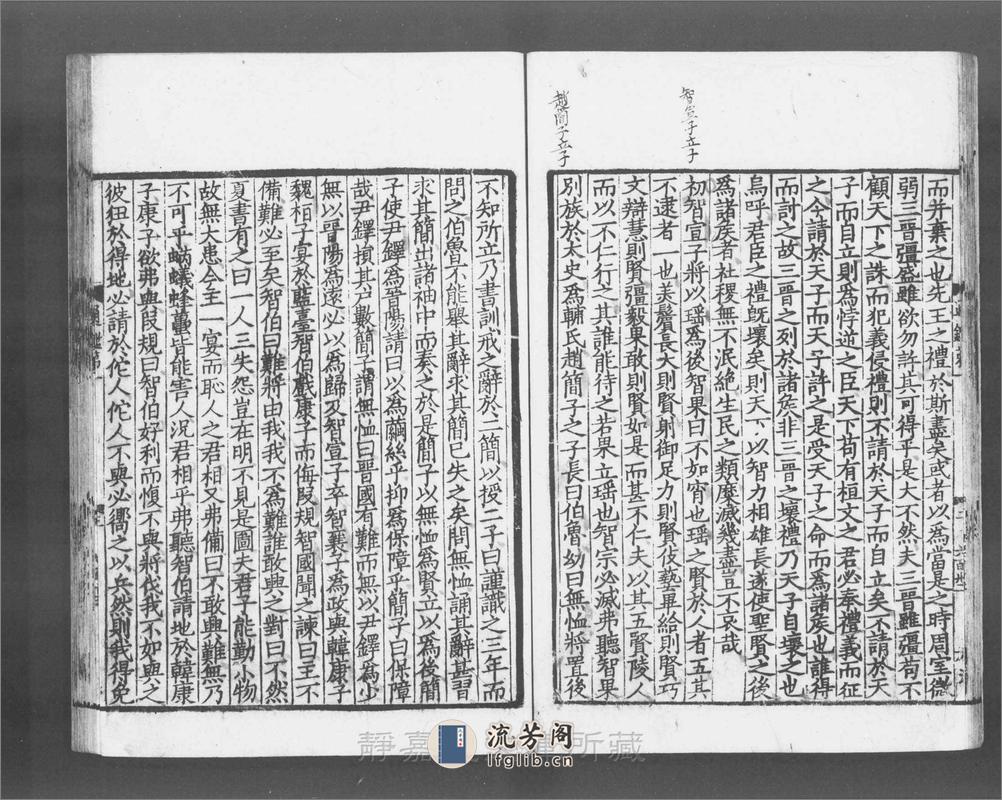 智宣子立子
趙簡子立子
而并棄之也先王之禮於斯盡矣或者以為當是之時周室微
弱三晉彊盛雖欲勿許其可得乎是大不然夫三晉雖彊苟不
顧天下之誅而犯義侵禮則不請於天子而自立矣不請於天
子而自立則為悖逆之臣天下苟有桓文之君必奉禮義而征
之今請於天子而天子許之是受天子之命而為諸侯也誰得
而討之故三晉之列於諸侯非三晉之壞禮乃天子自壞之也
烏呼君臣之禮旣壞矣則天下以智力相雄長遂使聖賢之後
為諸侯者社稷無不泯絕生民之類糜滅幾盡豈不哀哉
初智宣子將以瑤為後智果曰不如宵也瑤之賢於人者五其
不逮者 也美鬢長大則賢射御足力則賢伎藝畢給則賢巧
文辯慧則賢彊毅果敢則賢如是而甚不仁夫以其五賢陵人
而以不仁行之其誰能待之若果立瑤也智宗必滅弗聽智果
別族於太史為輔氏趙簡子之子長曰伯魯幼曰無恤將置後
不知所立乃書訓戒之辭於二簡以授二子曰謹識之三年而
問之伯魯不能舉其辭求其簡已失之矣問無恤誦其辭甚習
求其簡出諸袖中而奏之於是簡子以無恤為賢立以為後簡
子使尹鐸為晉陽請曰以為繭絲乎抑為保障乎簡子曰保障
哉尹鐸損其戶數簡子謂無恤曰晉國有難而無以尹鐸為少
無以晉陽為遠必以為歸及智宣子卒智襄子為政與韓康子
魏桓子宴於藍臺智伯戲康子而侮段規智國聞之諫曰主不
備難必至矣智伯曰難將由我我不為難誰敢興之對曰不然
夏書有之曰一人三失怨豈在明不見是圖夫君子能勤小物
故無大患今主一宴而恥人之君相又弗備曰不敢興難無乃
不可乎蜹蟻蜂蠆皆能害人況君相乎弗聽智伯請地於韓康
子康子欲弗與段規曰智伯好利而愎不與將伐我不如與之
彼狃於得地必請於佗人佗人不與必嚮之以兵然則我得免
静嘉 所藏
流芳阁
lfglib.cn